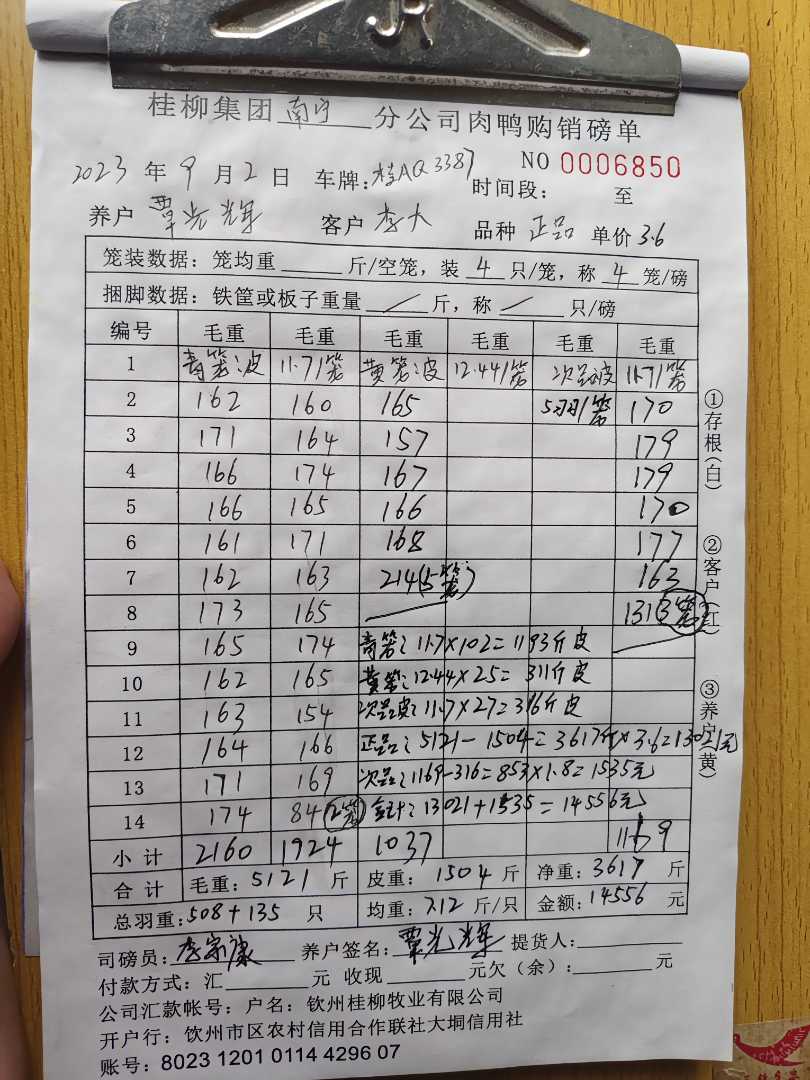 桂柳集团 南宁 分公司肉鸭购销磅单
NO 0006850
2023 年 9 月 2 日 车牌:桂AQ3387 时间段: 至
养户 覃光辉 客户 李大 品种 正品 单价 3.6
笼装数据: 笼均重 斤/空笼, 装 4 只/笼, 称 4 笼/磅
捆脚数据: 铁筐或板子重量 / 斤, 称 / 只/磅
编号 毛重 毛重 毛重 毛重 毛重 毛重
1 青笼:皮 11.7/笼 黄笼:皮 12.44/笼 次品皮 11.7/笼
2 162 160 165 5羽/笼 170
3 171 164 157 179
4 166 174 167 179
5 166 165 166 170
6 161 171 168 177
7 162 163 214(5笼) 163
8 173 165 131(3笼)
9 165 174 青笼:11.7×102=1193斤皮
10 162 165 黄笼:12.44×25=311斤皮
11 163 154 次品皮:11.7×27=316斤皮
12 164 166 正品:5121-1504=3617斤×3.6=13021元
13 171 169 次品:1169-316=853×1.8=1535元
14 174 84(2笼) 合计:13021+1535=14556元
小计 2160 1924 1037 1169
合计 毛重:5121 斤 皮重: 1504 斤 净重:3617 斤
总羽重:508+135 只 均重:7.12 斤/只 金额:14556 元
司磅员:李宗康 养户签名:覃光辉 提货人:
付款方式: 汇 元 收现 元欠(余): 元
公司汇款帐号: 户名: 钦州桂柳牧业有限公司
开户行: 钦州市区农村信用合作联社大垌信用社
账号: 8023 1201 0114 4296 07
①存根(白)
②客户(红)
③养户(黄)